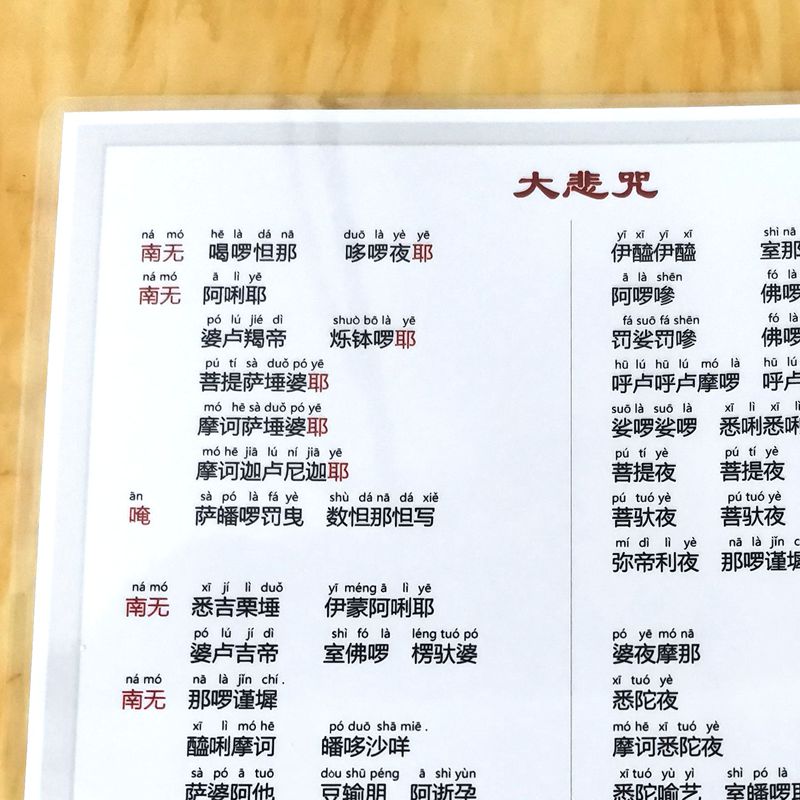 大悲咒
ná mó hē là dá nā duō là yè yē
南无 喝啰怛那 哆啰夜耶
ná mó ā lì yē
南无 阿唎耶
pó lú jié dì shuò bō là yē
婆卢羯帝 烁钵啰耶
pú tí sà duǒ pó yē
菩提萨埵婆耶
mó hē sà duǒ pó yē
摩诃萨埵婆耶
mó hē jiā lú ní jiā yē
摩诃迦卢尼迦耶
ān sà pó là fá yè shù dá nā dá xiě
唵 萨皤啰罚曳 数怛那怛写
ná mó xī jí lì duǒ yī méng ā lì yē
南无 悉吉栗埵 伊蒙阿唎耶
pó lú jí dì shì fó là léng tuó pó
婆卢吉帝 室佛啰 楞驮婆
ná mó nā là jǐn chí.
南无 那啰谨墀
xī lì mó hē pó duō shā miē.
醯唎摩诃 皤哆沙咩
sà pó ā tuō dòu shū péng ā shì yùn
萨婆阿他 豆输朋 阿逝孕
yī xī yī xī shì nā
伊醯伊醯 室那
ā là shēn fó là
阿啰嘇 佛啰
fá suō fá shēn fó là
罚娑罚嘇 佛啰
hū lú hū lú mó là hū lú
呼卢呼卢摩啰 呼卢
suō là suō là xī lì xī lì
娑啰娑啰 悉唎悉唎
pú tí yè pú tí yè
菩提夜 菩提夜
pú tuó yè pú tuó yè
菩驮夜 菩驮夜
mí dì lì yè nā là jǐn
弥帝利夜 那啰谨墀
pó yē mó nā
婆夜摩那
xī tuó yè
悉陀夜
mó hē xī tuó yè
摩诃悉陀夜
xī tuó yù yì shì pó là
悉陀喻艺 室皤啰耶